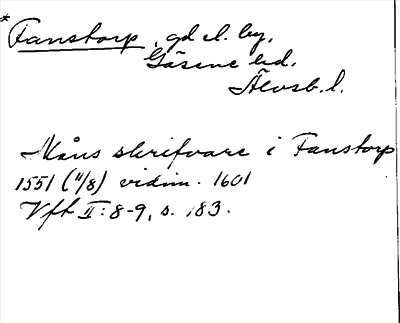 * Fanstorp, gd el. by,
Gäsene hd,
Älvsb. l.
Måns skrifvare i Fanstorp
1551 (11/8) vidim. 1601
Vft II: 8-9, s. 183.